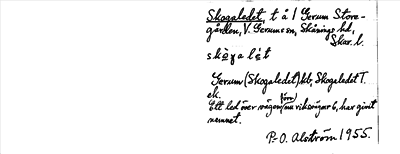 Skogaledet, t å / Gerum Store-
gården, V. Gerums sn, Skånings hd,
Skar. l.
skògalét
Gerum (Skogaledet) kt, Skogaledet T.
ek.
Ett led över vägen (förr) nu riksvägar 6, har givit
namnet.
P.-O. Alström 1955.